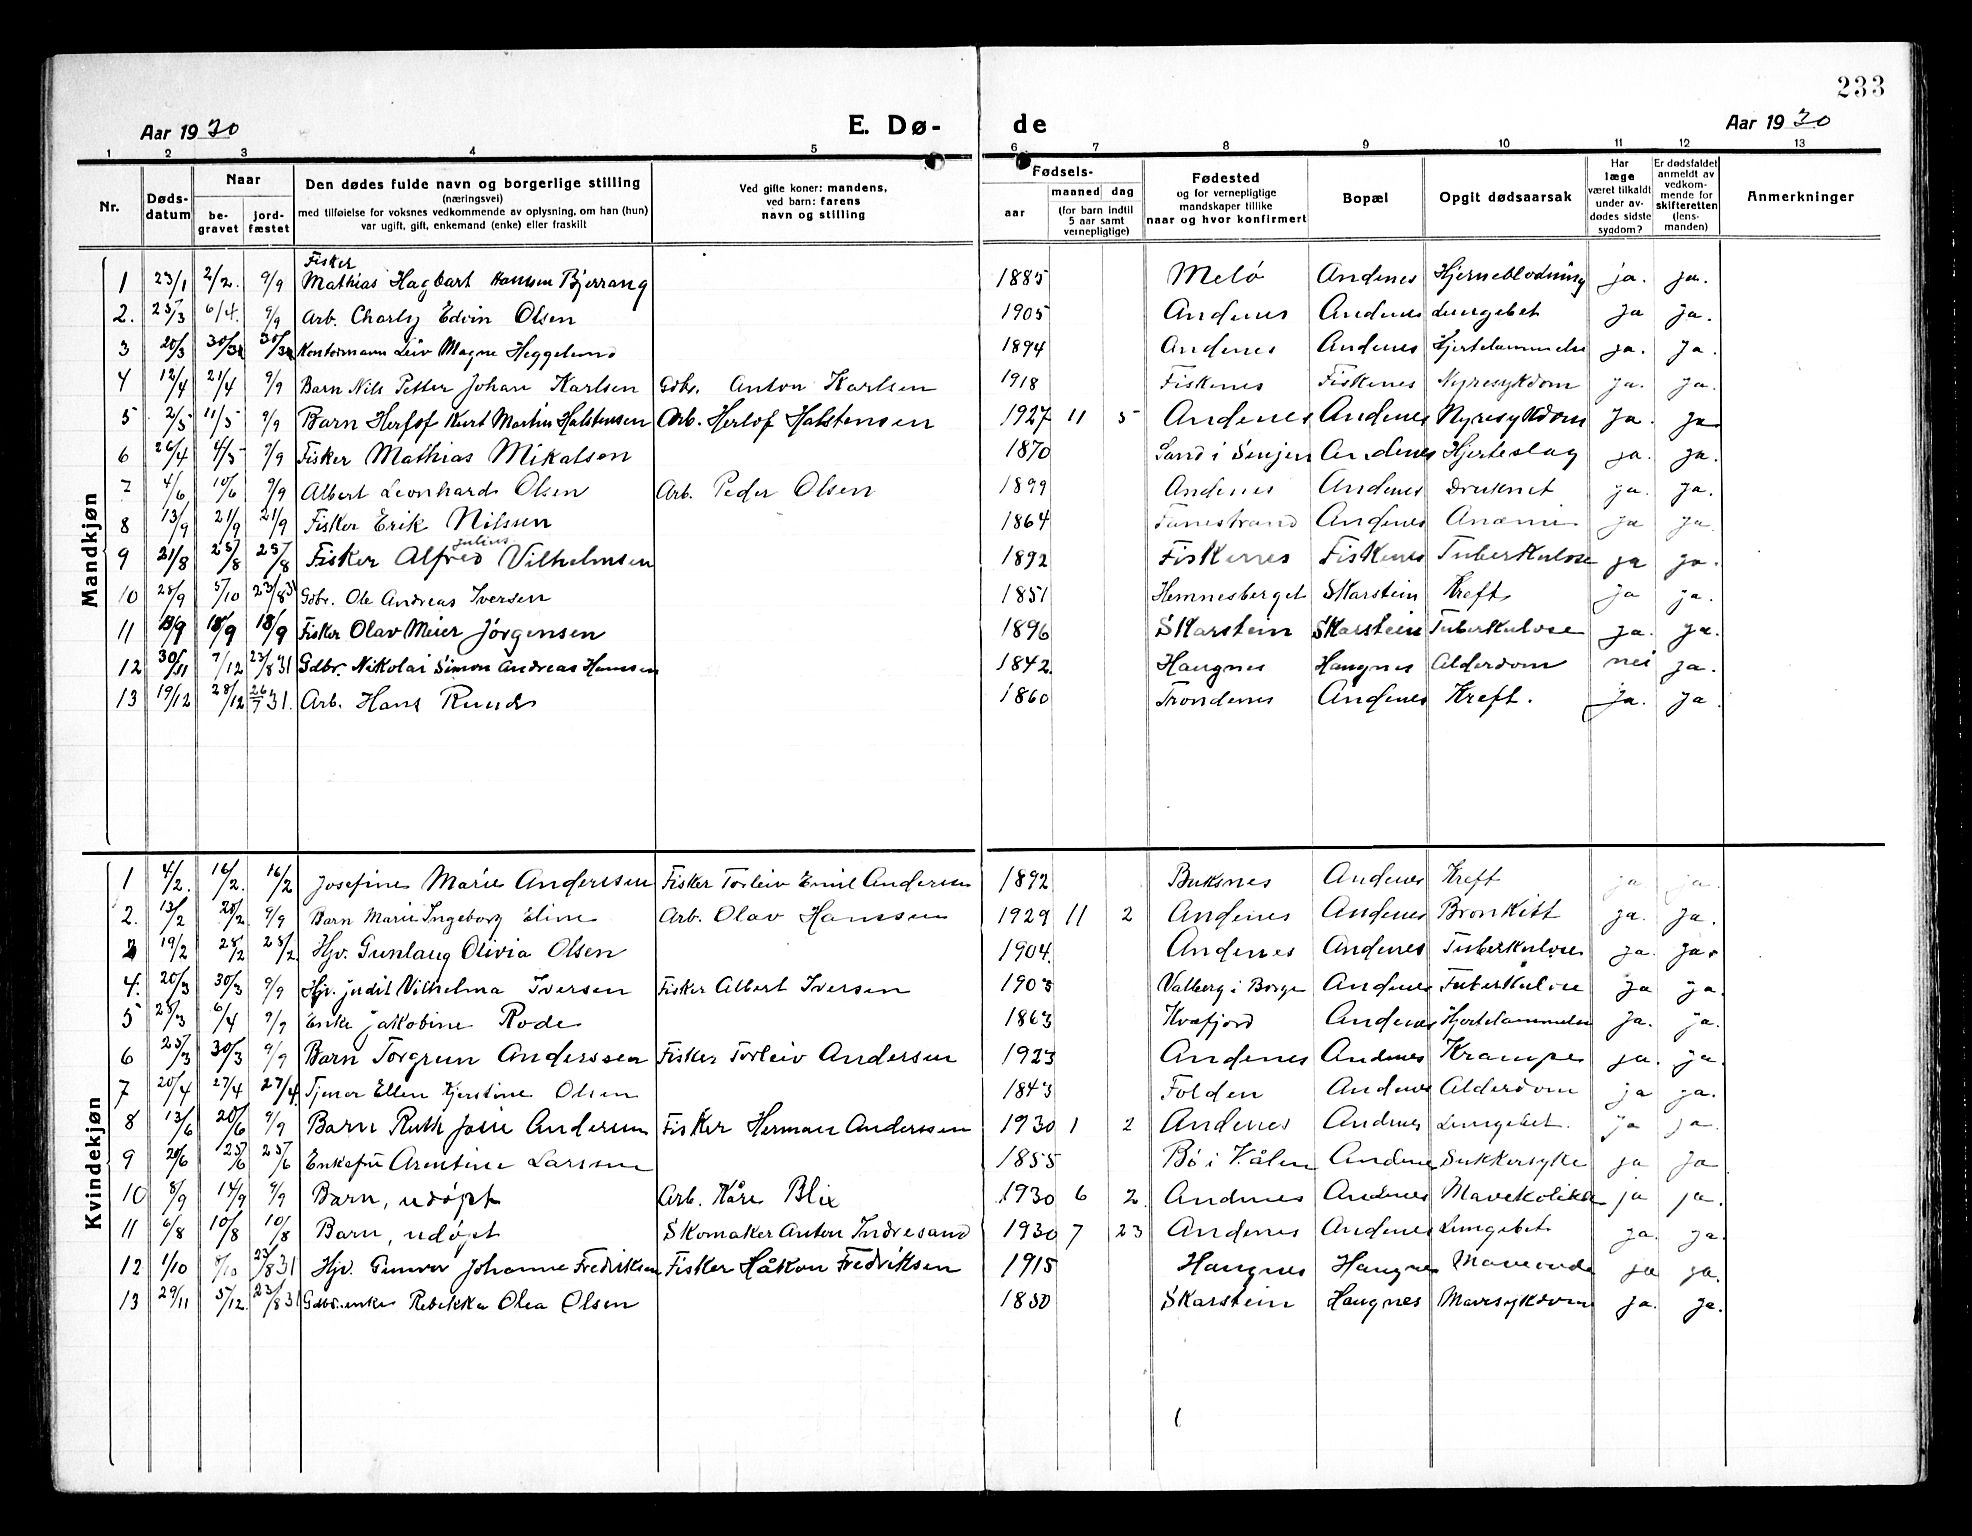 233
Aar 1930
E. Dø-
de
Aar 1930
1 2 3 4 5 6 7 8 9 10 11 12 13
Nr.
Døds-
datum
Naar
be-
gravet
jord-
fæstet
Den dødes fulde navn og borgerlige stilling
(næringsvei)
med tilføielse for voksnes vedkommende av oplysning, om han (hun)
var ugift, gift, enkemand (enke) eller fraskilt
Ved gifte koner: mandens,
ved barn: farens
navn og stilling
Fødsels-
aar
maaned dag
(for barn indtil
5 aar samt
vernepligtige)
Fødested
og for vernepligtige
mandskaper tillike
naar og hvor konfirmert
Bopæl
Opgit dødsaarsak
Har
læge
været tilkaldt
under av-
dødes sidste
sygdom?
Er dødsfaldet
anmeldt av
vedkom-
mende for
skifteretten
(lens-
manden)
Anmerkninger
Mandkjøn
Fisker
1 23/1 2/2. 9/9 Mathias Hagbart Hansen Bjerrang 1885 Melö Andenes Hjerneblödning ja. ja.
2. 25/3 6/4. 9/9 Arb. Charly Edvin Olsen 1905 Andenes Andenes Lungebet ja ja.
3 20/3 30/3 30/3 Kontormann Leiv Magne Heggelund 1894 Andenes Andenes Hjertelammelse ja. ja.
4 12/4 21/4 9/9 Barn Nils Petter Johan Karlsen Gdbr. Anton Karlsen 1918 Fiskenes Fiskenes Nyresykdom ja. ja.
5 2/5 11/5 9/9 Barn Herlof Kurt Martin Halstensen Arb. Herlof Halstensen 1927 11 5 Andenes Andenes Nyresykdom ja. ja
6 26/4 4/5 9/9 Fisker Mathias Mikalsen 1870 Sand i Senjen Andenes Hjerteslag ja. ja.
7 4/6 10/6 9/9 Albert Leonhard Olsen Arb. Peder Olsen 1899 Andenes Andenes Druknet ja. ja.
8 13/9 21/9 21/9 Fisker Erik Nilssen 1864 Andenes Anæmi ja ja
julius
9 21/8 25/8 25/8 Fisker Alfred Vilhelmsen 1892 Fiskenes Fiskenes Tuberkulose ja ja.
10 28/9 5/10 23/8 31 Gdbr. Ole Andreas Iversen 1851 Hemnesberget Skarstein Kreft ja ja.
11 13/9 18/9 18/9 Fisker Olav Meier Jörgensen 1896 Skarstein Skarstein Tuberkulose ja. ja.
12 30/11 7/12 23/8 31 Gdbr. Nikolai Simon Andreas Hansen 1842 Haugnes Haugnes Alderdom nei ja.
13 19/12 28/12 26/7 31. Arb. Hans Ruud 1860 Trondenes Andenes Kreft. ja. ja
Kvindekjøn
1 4/2. 16/2. 16/2 Josefine Marie Anderssen Fisker Torleiv Emil Andersen 1892 Buksnes Andenes Kreft ja ja.
2. 13/2 20/2. 9/9 Barn Marie Ingeborg Eline Arb. Olav Hanssen 1929 11 2 Andenes Andenes Bronkitt ja. ja.
3 19/2 25/2 25/2. Hjv. Gunlaug Olivia Olsen 1904. Andenes Andenes Tuberkulose ja. ja.
4. 20/3 30/3 9/9 Hjv. Judit Vilhelma Iversen Fisker Albert Iversen 1903 Valberg i Borge Andenes Tuberkulose ja ja.
5 25/3 6/4 9/9 Enke Jakobine Rode 1863 Kvæfjord Andenes Hjertelammelse ja. ja.
6 25/3 30/3 9/9 Barn Torgrun Anderssen Fisker Torleiv Andersen 1923 Andenes Andenes Krampe ja. ja.
7 20/4 27/4 27/4. Tjener Ellen Kjerstine Olsen 1843 Folden Andenes Alderdom ja ja.
8 13/6 20/6 9/9 Barn Ruth Josie Andersen Fisker Herman Anderssen 1930 1 2 Andenes Andenes Lungebet. ja ja.
9 20/6 25/6 25/6 Enkefru Arentine Larssen 1855 Bö i V.ålen Andenes Sukkersyke ja ja
10 8/9 14/9 9/9 Barn, udöpt Arb. Kåre Blix 1930 6 2 Andenes Andenes Mavekolikk ja ja.
11 6/8 10/8 10/8 Barn, udöpt Skomaker Anton Indresand 1930 7 23 Andenes Andenes Lungebet ja. ja.
12 1/10 8/10 23/8 31 Hjv. Gunvor Johanne Fredriksen Fisker Håkon Fredriksen 1915 Haugnes Haugnes Maveonde ja ja.
13 29/11 5/12. 23/8 31 Gdbs. enke Rebekka Olea Olsen 1850 Skarstein Haugnes Mavesykdom ja. ja.